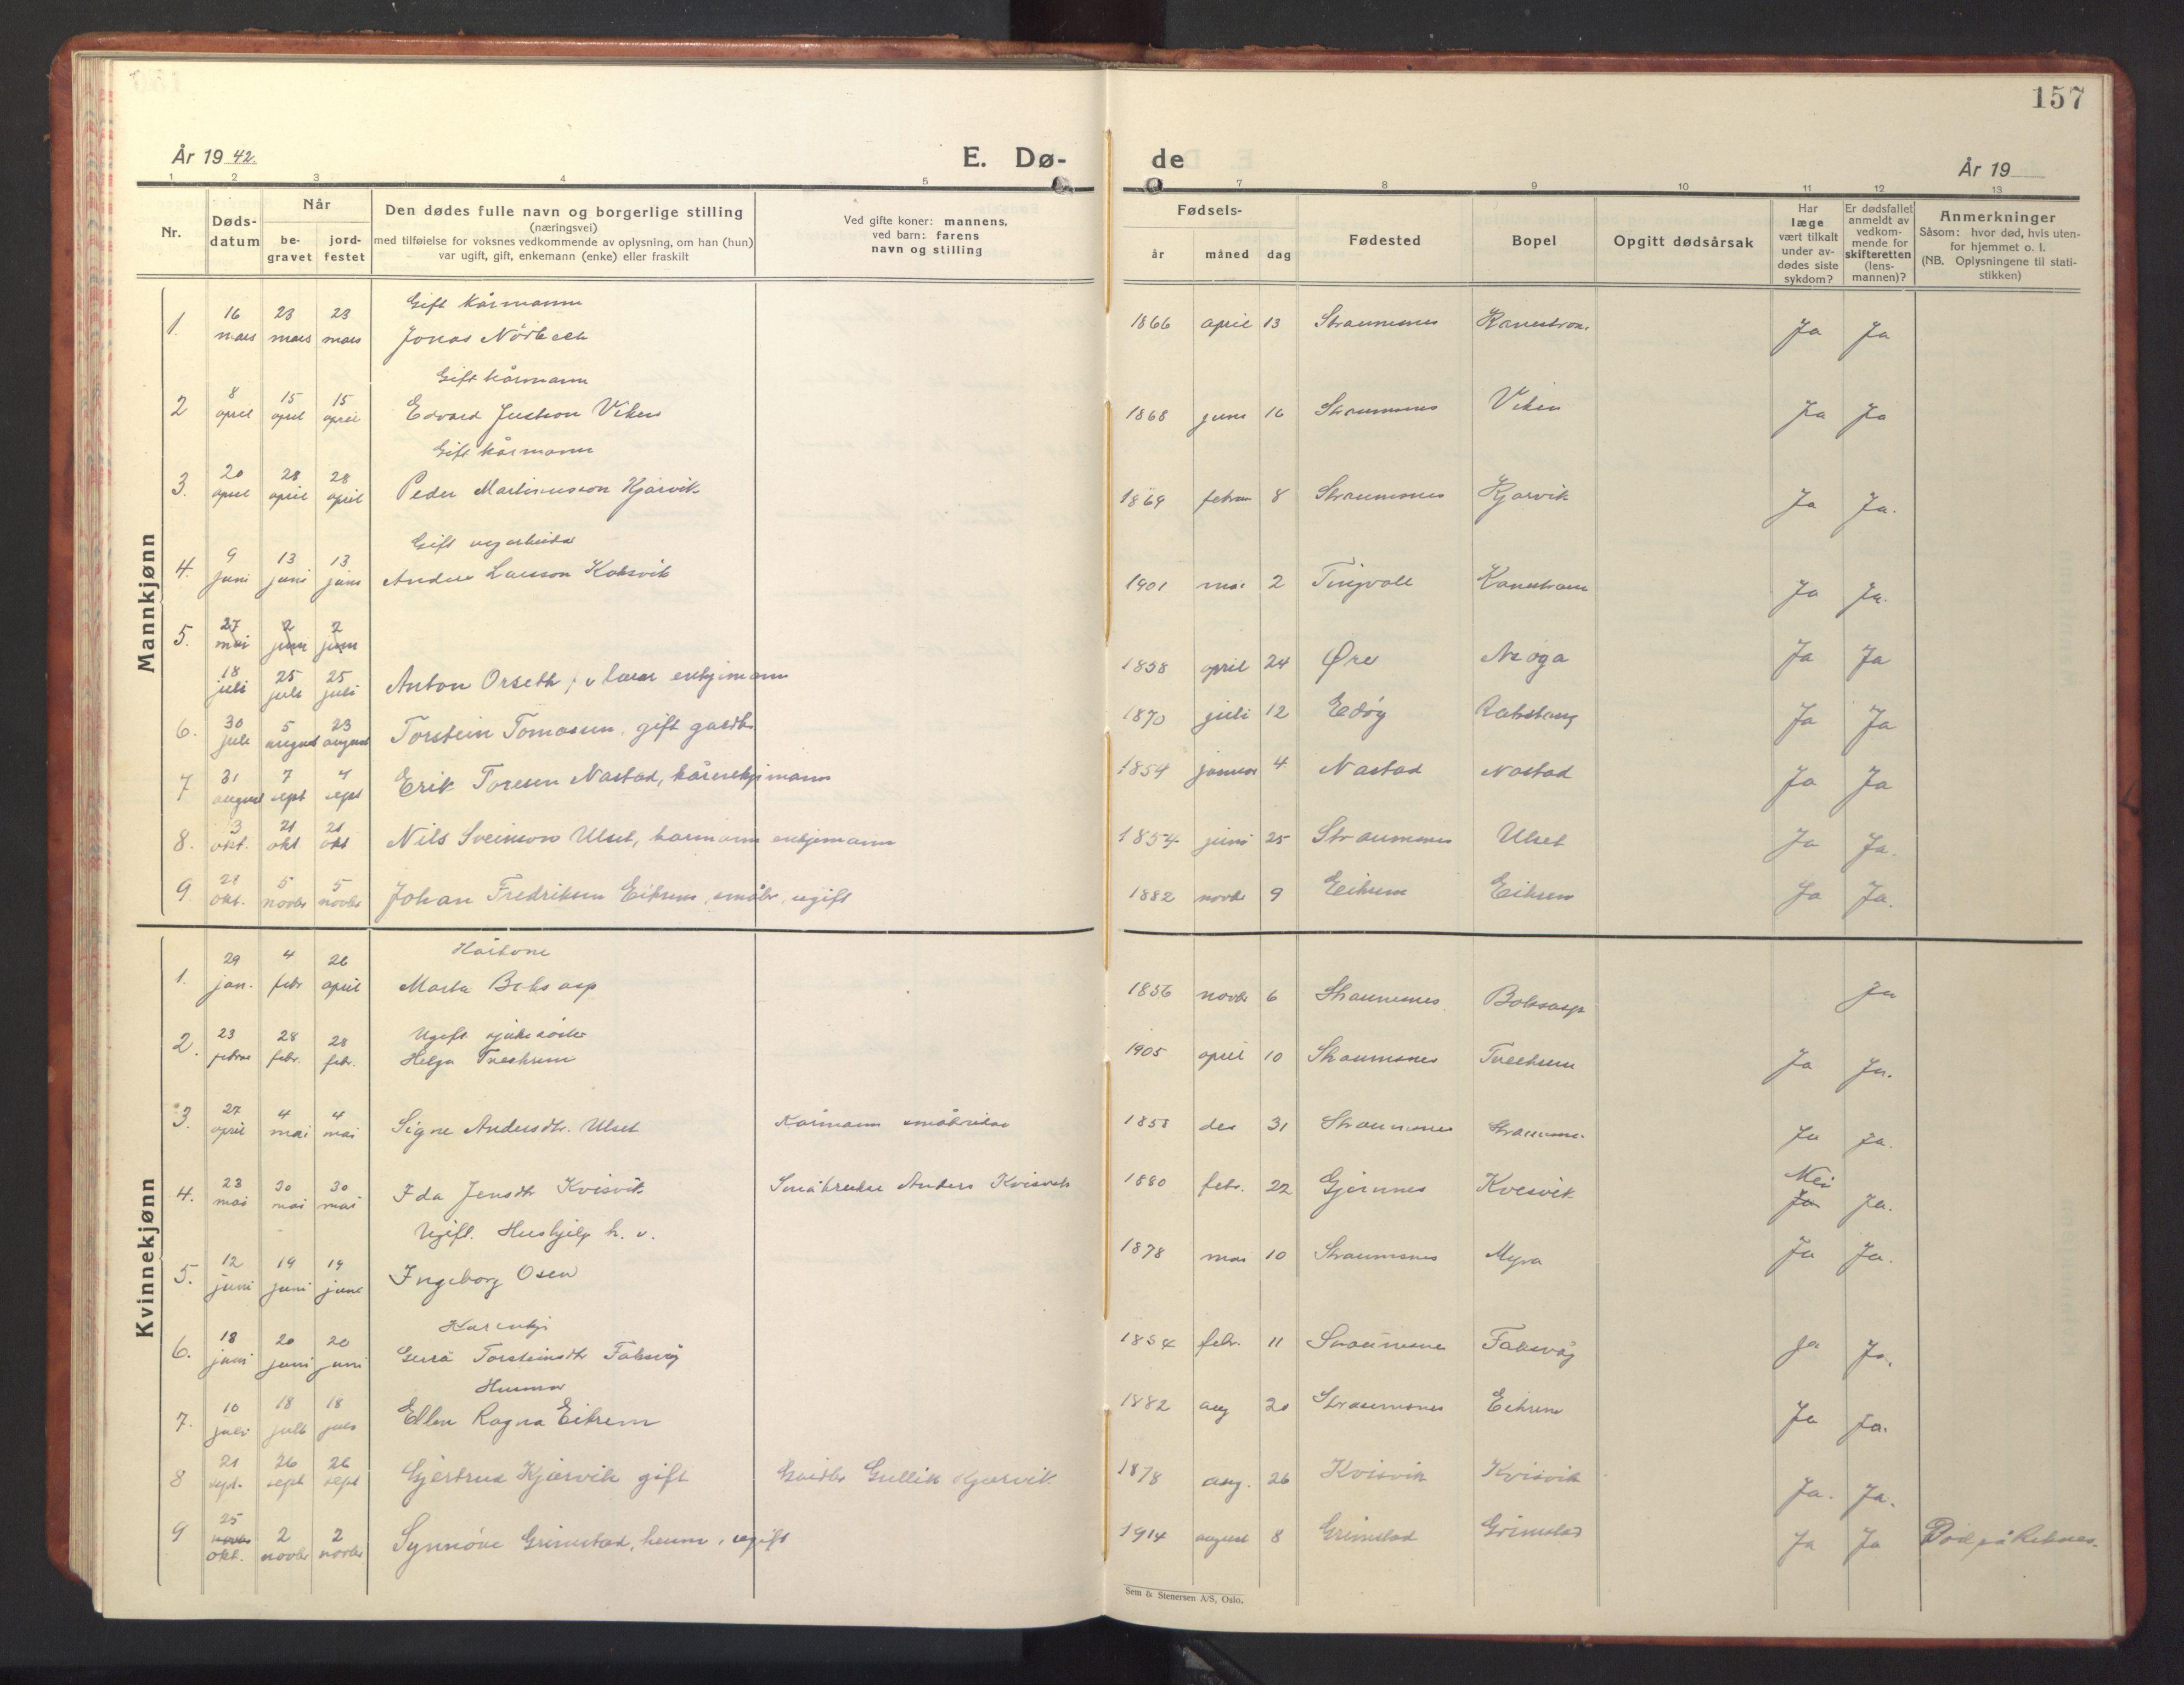 157
År 1942.
E. Dø-
de
År 19
1 2 3 4 5
7 8 9 10 11 12 13
Nr.
Døds-
datum
Når
be-
gravet
jord-
festet
Den dødes fulle navn og borgerlige stilling
(næringsvei)
med tilføielse for voksnes vedkommende av oplysning, om han (hun)
var ugift, gift, enkemann (enke) eller fraskilt
Ved gifte koner: mannens,
ved barn: farens
navn og stilling
Fødsels-
år måned dag
Fødested
Bopel
Opgitt dødsårsak
Har
læge
vært tilkalt
under av-
dødes siste
sykdom?
Er dødsfallet
anmeldt av
vedkom-
mende for
skifteretten
(lens-
mannen)?
Anmerkninger
Såsom: hvor død, hvis uten-
for hjemmet o. l.
(NB. Oplysningene til stati-
stikken)
Mannkjønn
Gift kårmann
1. 16 mars 23 mars 23 mars Jonas 1866 april 13 Straumsnes Ja Ja
Gift kårmann
2 8 april 15 april 15 april Edvard Viken 1868 juni 16 Straumsnes Viken Ja Ja
Gift kårmann
3. 20 april 28 april 28 april Peder Martinusson Kjørvik 1869 februar 8 Straumsnes Kjørvik Ja Ja.
Gift vegarbeidar
4. 9 juni 13 juni 13 juni Anders Larsson 1901 mai 2 Tingvoll Kanestraum Ja Ja.
5. 27 mai 2 juni 2 juni
18 juli 25 juli 25 juli Anton Orseth, enkjemann 1858 april 24 Øre Ja Ja
6. 30 juli 5 august 23 august Torstein Tomassen, gift gardbr. 1870 juli 12 Edøy Ja Ja
7 31 august 7 sept 7 sept Erik Toresen Nastad, kårenkjimann 1854 januar 4 Nastad Nastad Ja Ja
8. 3 okt. 21 okt 21 okt Nils Sveinson Ulset, kårmann enkjemann 1854 juni 25 Straumsnes Ulset Ja Ja.
9. 28 okt. 5 novbr 5 novbr Johan Fredriksen Eikrem, småbr, ugift 1882 novbr 9 Eikrem Eikrem Ja Ja.
Kvinnekjønn
Kårkone
1. 29 jan. 4 febr 26 april Marta Boksasp 1856 novbr 6 Straumsnes Boksasp Ja
Ugift sjukesøster
2. 23 februar 28 febr. 28 febr. Helga Tveekrem 1905 april 10 Straumsnes Tveekrem Ja Ja.
3. 27 april 4 mai 4 mai Signe Andersdtr. Ulset Kårmann småbrukar des 31 Straumsnes Ja Ja.
4. 23 mai 30 mai 30 mai Ida Jensdtr Kvisvik Småbrukar Anders Kvisvik 1880 febr. 22 Gjemnes Kvisvik Nei Ja Ja.
Ugift. Hushjelp h. v.
5. 12 juni 19 juni 19 juni Ingeborg Osen 1878 mai 10 Straumsnes Myra Ja Ja.
Kårenkj
6. 18 juni 20 juni 20 juni Torsteinsdtr Faksvåg 1854 febr. 11 Straumsnes Faksvåg Ja Ja.
Husmor
7. 10 juli 18 juli 18 juli Ellen Ragna Eikrem 1882 aug 20 Straumsnes Eikrem Ja Ja.
8 21 sept. 26 sept 26 sept Gjertrud Kjørvik gift Gardbr Gullik Kjørvik 1878 aug. 26 Kvisvik Kvisvik Ja. Ja.
9 25 novbr okt. 2 novbr 2 novbr Synnöve Grimstad, heim, ugift 1914 august 8 Grimstad Grimstad Ja Ja Död på Reknes.
Sem & Stenersen A/S, Oslo.